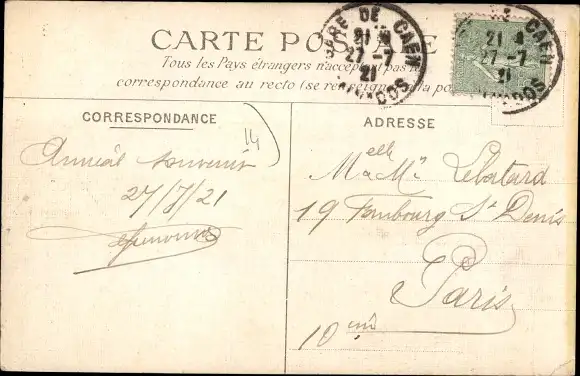 CARTE POSTALE
Tous les Pays étrangers n'acceptent pas la
correspondance au recto (se renseigner à la poste)
GARE DE CAEN
21
27 - 7
21
CALVADOS
CAEN
21
27 - 7
21
CORRESPONDANCE
14
Amical souvenir
27/7/21
ADRESSE
Melle M. Lebatard
19 Faubourg St Denis
Paris
10eme